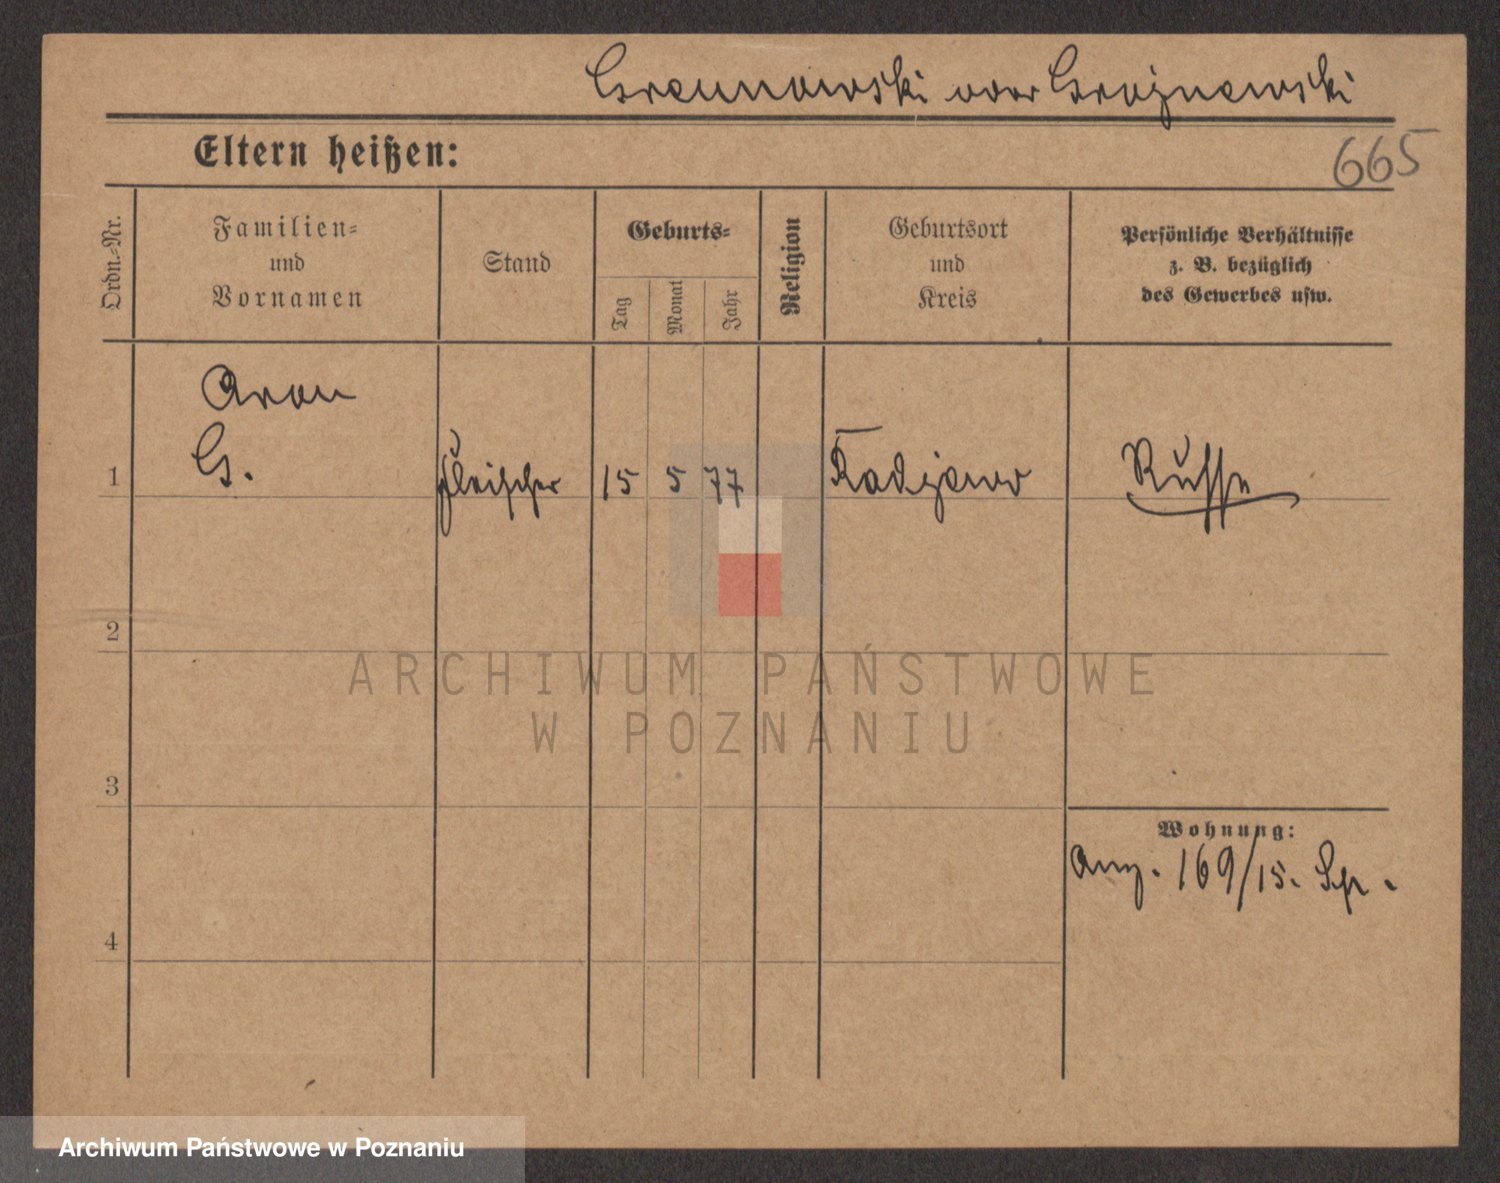 Grennowski oder Grożnewski
Eltern heißen:
665
Ordn.-Nr.
Familien-
und
Vornamen
Stand
Geburts-
Tag
Monat
Jahr
Religion
Geburtsort
und
Kreis
Persönliche Verhältnisse
z. B. bezüglich
des Gewerbes usw.
Aron
1 G. Fleischer 15 5 77 Radzewo Russe
2
ARCHIWUM PAŃSTWOWE
W POZNANIU
3
Wohnung:
Anz. 169/15.
4
Archiwum Państwowe w Poznaniu